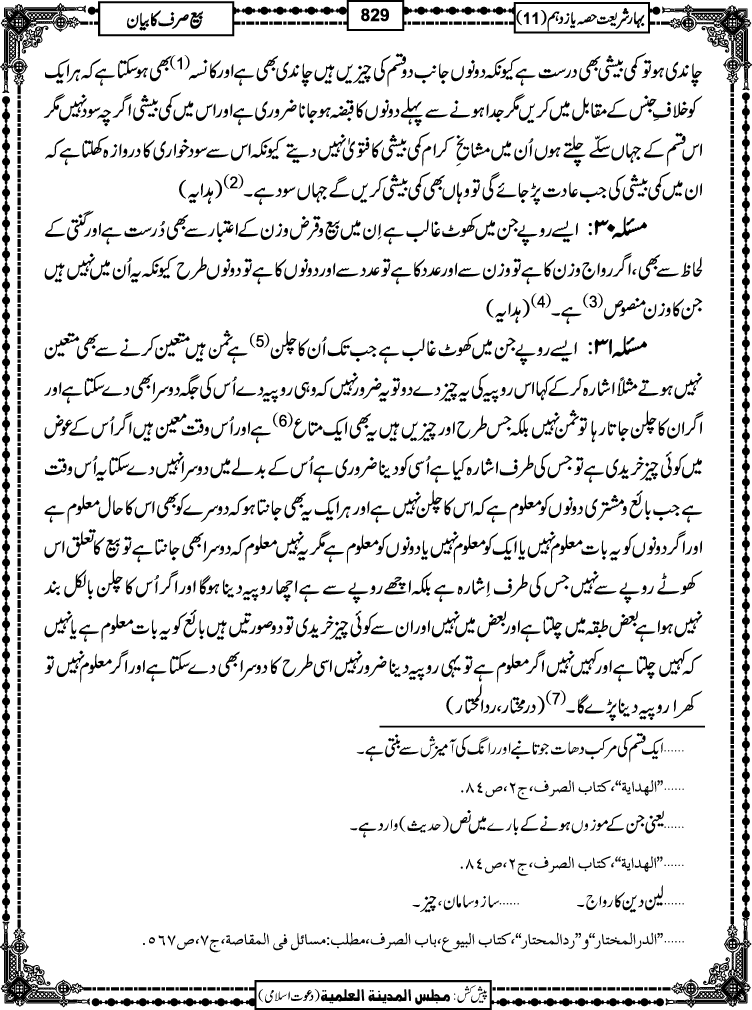 بہارِ شریعت حصہ یازدہم (11)
829
بیع صرف کا بیان
چاندی ہو تو کمی بیشی بھی درست ہے کیونکہ دونوں جانب دو قسم کی چیزیں ہیں چاندی بھی ہے اور کانسہ (1) بھی ہو سکتا ہے کہ ہر ایک
کو خلافِ جنس کے مقابل میں کریں مگر جدا ہونے سے پہلے دونوں کا قبضہ ہو جانا ضروری ہے اور اس میں کمی بیشی اگرچہ سود نہیں مگر
اس قسم کے جہاں سکّے چلتے ہوں اُن میں مشایخِ کرام کمی بیشی کا فتویٰ نہیں دیتے کیونکہ اس سے سود خواری کا دروازہ کھلتا ہے کہ
ان میں کمی بیشی کی جب عادت پڑ جائے گی تو وہاں بھی کمی بیشی کریں گے جہاں سود ہے۔ (2) (ہدایہ)
مسئلہ ۳۰: ایسے روپے جن میں کھوٹ غالب ہے اِن میں بیع و قرض وزن کے اعتبار سے بھی دُرست ہے اور گنتی کے
لحاظ سے بھی، اگر رواج وزن کا ہے تو وزن سے اور عدد کا ہے تو عدد سے اور دونوں کا ہے تو دونوں طرح کیونکہ یہ اُن میں نہیں ہیں
جن کا وزن منصوص (3) ہے۔ (4) (ہدایہ)
مسئلہ ۳۱: ایسے روپے جن میں کھوٹ غالب ہے جب تک اُن کا چلن (5) ہے ثمن ہیں متعین کرنے سے بھی متعین
نہیں ہوتے مثلاً اشارہ کر کے کہا اس روپیہ کی یہ چیز دے دو تو یہ ضرور نہیں کہ وہی روپیہ دے اُس کی جگہ دوسرا بھی دے سکتا ہے اور
اگر ان کا چلن جاتا رہا تو ثمن نہیں بلکہ جس طرح اور چیزیں ہیں یہ بھی ایک متاع (6) ہے اور اُس وقت معین ہیں اگر اُس کے عوض
میں کوئی چیز خریدی ہے تو جس کی طرف اشارہ کیا ہے اُسی کو دینا ضروری ہے اُس کے بدلے میں دوسرا نہیں دے سکتا یہ اُس وقت
ہے جب بائع و مشتری دونوں کو معلوم ہے کہ اس کا چلن نہیں ہے اور ہر ایک یہ بھی جانتا ہو کہ دوسرے کو بھی اس کا حال معلوم ہے
اور اگر دونوں کو یہ بات معلوم نہیں یا ایک کو معلوم نہیں یا دونوں کو معلوم ہے مگر یہ نہیں معلوم کہ دوسرا بھی جانتا ہے تو بیع کا تعلق اس
کھوٹے روپے سے نہیں جس کی طرف اِشارہ ہے بلکہ اچھے روپے سے ہے اچھا روپیہ دینا ہوگا اور اگر اُس کا چلن بالکل بند
نہیں ہوا ہے بعض طبقہ میں چلتا ہے اور بعض میں نہیں اور ان سے کوئی چیز خریدی تو دو صورتیں ہیں بائع کو یہ بات معلوم ہے یا نہیں
کہ کہیں چلتا ہے اور کہیں نہیں اگر معلوم ہے تو یہی روپیہ دینا ضرور نہیں اسی طرح کا دوسرا بھی دے سکتا ہے اور اگر معلوم نہیں تو
کھرا روپیہ دینا پڑے گا۔ (7) (درمختار، ردالمحتار)
......ایک قسم کی مرکب دھات جو تانبے اور رانگ کی آمیزش سے بنتی ہے۔
......"الھدایة"، کتاب الصرف، ج۲، ص۸۴.
......یعنی جن کے موزوں ہونے کے بارے میں نص (حدیث) وارد ہے۔
......"الھدایة"، کتاب الصرف، ج۲، ص۸۴.
......لین دین کا رواج۔ ......ساز و سامان، چیز۔
......"الدرالمختار" و "ردالمحتار"، کتاب البیوع، باب الصرف، مطلب: مسائل فی المقاصة، ج۷، ص۵۶۷.
پیش کش: مجلس المدینة العلمیة (دعوت اسلامی)